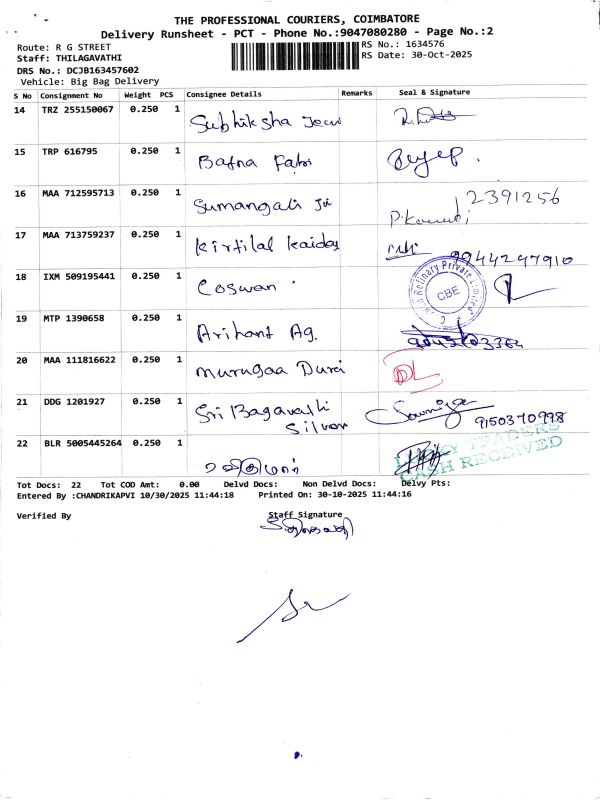 THE PROFESSIONAL COURIERS, COIMBATORE
Delivery Runsheet - PCT - Phone No.:9047080280 - Page No.:2
Route: R G STREET
RS No.: 1634576
Staff: THILAGAVATHI
RS Date: 30-Oct-2025
DRS No.: DCJB163457602
Vehicle: Big Bag Delivery
S No Consignment No Weight PCS Consignee Details Remarks Seal & Signature
14 TRZ 255150067 0.250 1 Subhiksha
15 TRP 616795 0.250 1 Bafna
16 MAA 712595713 0.250 1 Sumangali 2391256
17 MAA 713759237 0.250 1 Kirtilal Kaidas 9944247910
18 IXM 509195441 0.250 1 Coswan CBE
Refinary Private Limited
19 MTP 1390658 0.250 1 Arihant Ag.
20 MAA 111816622 0.250 1 Murugaa Durai DL
21 DDG 1201927 0.250 1 Sri Bagavathi Silver Sowmiya 9150370998
22 BLR 5005445264 0.250 1 ரவிகுமார்
LUCKY TRADERS
CASH RECEIVED
Tot Docs: 22 Tot COD Amt: 0.00 Delvd Docs: Non Delvd Docs: Delvy Pts:
Entered By :CHANDRIKAPVI 10/30/2025 11:44:18 Printed On: 30-10-2025 11:44:16
Verified By Staff Signature